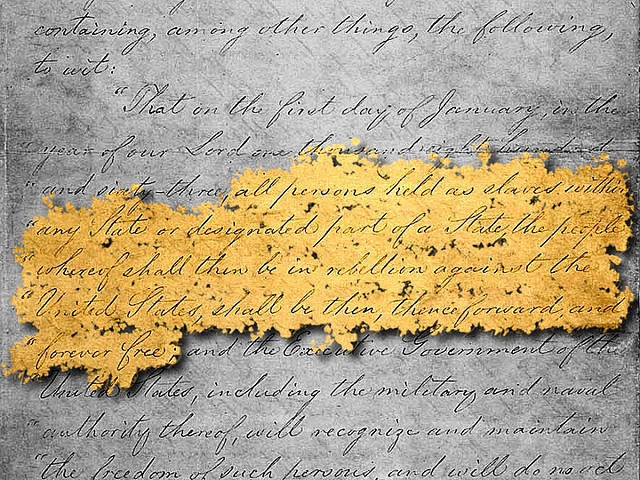 containing, among other things, the following,
to wit:
"That on the first day of January, in the
"year of our Lord one thousand eight hundred
"and sixty-three, all persons held as slaves within
"any State or designated part of a State, the people
"whereof shall then be in rebellion against the
"United States, shall be then, thenceforward, and
"forever free; and the Executive Government of the
"United States, including the military and naval
"authority thereof, will recognize and maintain
"the freedom of such persons, and will do no act